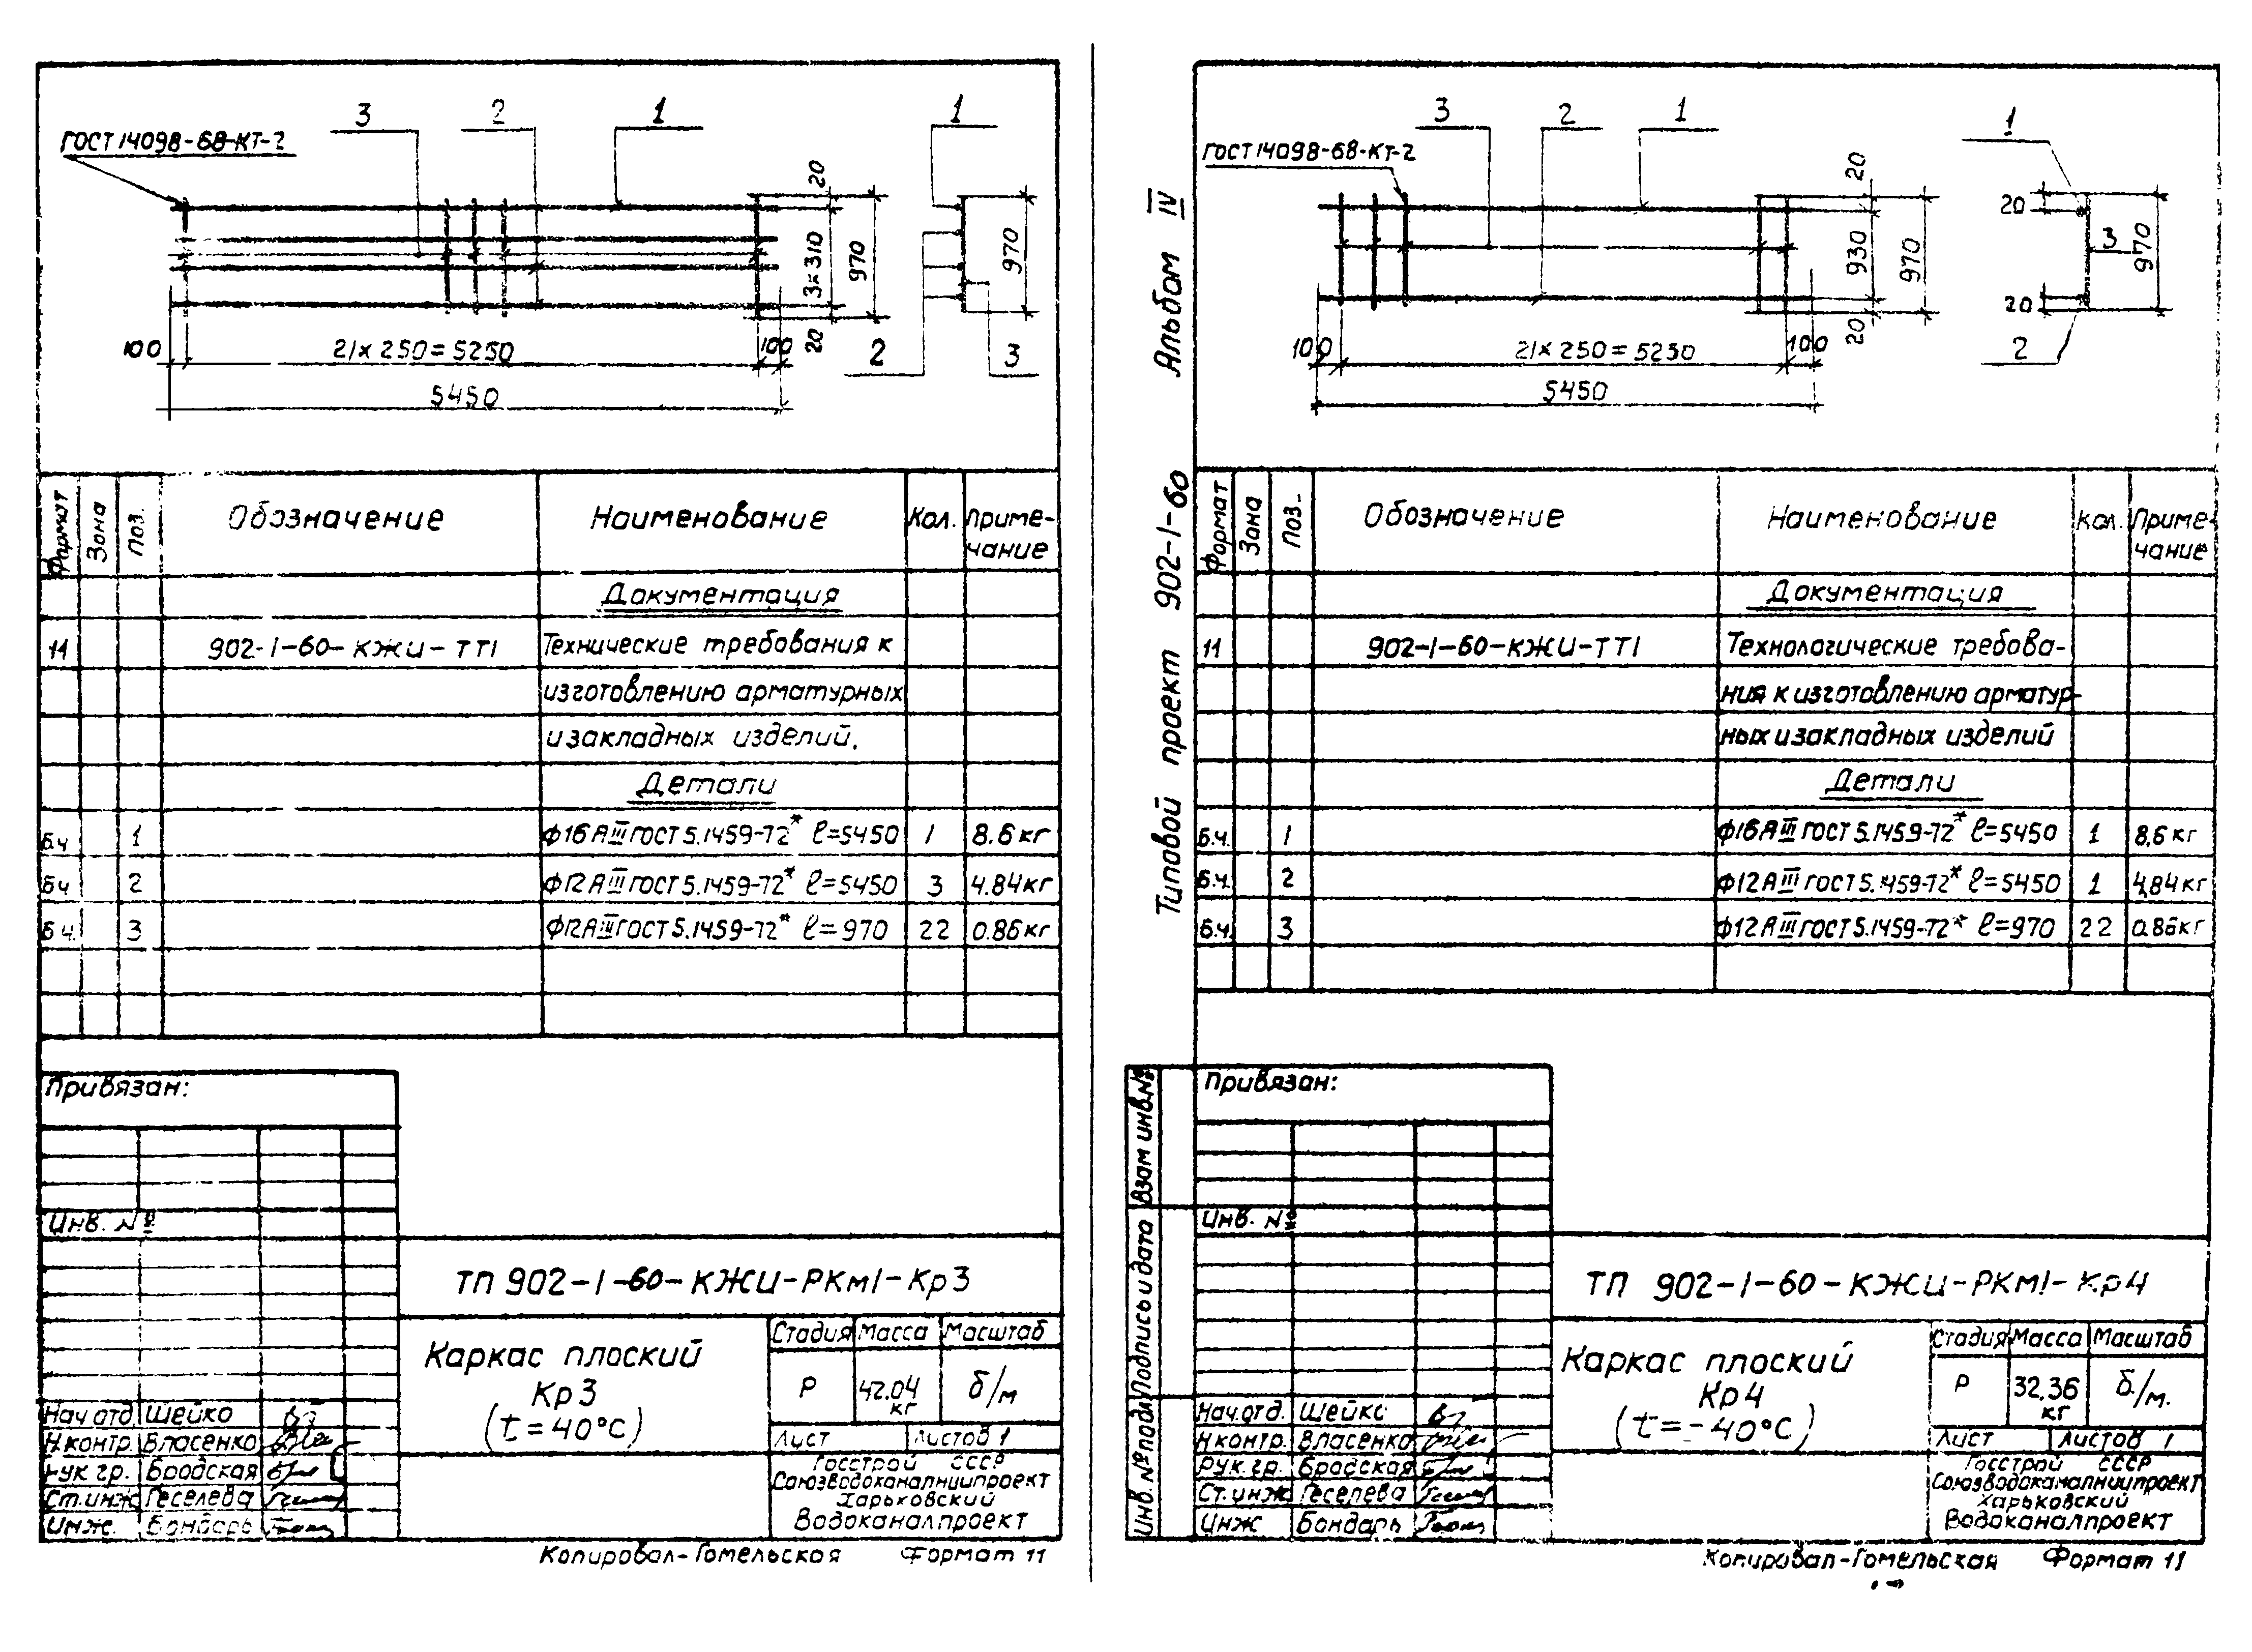 3 2 1 1
ГОСТ 14098-68-КТ-2
20
3×310
970
20
970
100 21×250=5250 100
5450
2 3
Формат Зона Поз. Обозначение Наименование Кол. Приме-
чание
Документация
11 902-1-60-КЖИ-ТТ1 Технические требования к
изготовлению арматурных
и закладных изделий.
Детали
Б.ч 1 Ф16АIII ГОСТ 5.1459-72* ℓ=5450 1 8.6 кг
Бч 2 Ф12АIII ГОСТ 5.1459-72* ℓ=5450 3 4.84кг
Б.ч. 3 Ф12АIII ГОСТ 5.1459-72* ℓ=970 22 0.86 кг
Привязан:
Инв. №
ТП 902-1-60-КЖИ-РКм1-Кр3
Каркас плоский
Кр3
(t=40°С)
Стадия Масса Масштаб
Р 42.04 кг б/м
Лист Листов 1
Госстрой СССР
Союзводоканалниипроект
Харьковский
Водоканалпроект
Нач отд. Шейко
Н.контр. Власенко
Рук гр. Бродская
Ст.инж Геселева
Инж. Бондарь
Копировал-Гомельская Формат 11
Типовой проект 902-1-60 Альбом IV
3 2 1 1
ГОСТ 14098-68-КТ-2
20
930
970
20
20
3
970
20
100 21×250=5250 100
5450
2
Формат Зона Поз. Обозначение Наименование Кол. Приме-
чание
Документация
11 902-1-60-КЖИ-ТТ1 Технологические требова-
ния к изготовлению арматур-
ных и закладных изделий
Детали
Б.ч. 1 Ф16АIII ГОСТ 5.1459-72* ℓ=5450 1 8,6 кг
Б.ч. 2 Ф12АIII ГОСТ 5.1459-72* ℓ=5450 1 4,84кг
Б.ч. 3 Ф12АIII ГОСТ 5.1459-72* ℓ=970 22 0.86кг
Привязан:
Инв. №
Взам инв.№
Подпись и дата
Инв. № подл
ТП 902-1-60-КЖИ-РКм1-Кр4
Каркас плоский
Кр4
(t=-40°С)
Стадия Масса Масштаб
Р 32,36 кг б/м.
Лист Листов 1
Госстрой СССР
Союзводоканалниипроект
Харьковский
Водоканалпроект
Нач.отд. Шейко
Н контр. Власенко
Рук.гр. Бродская
Ст.инж Геселева
Инж Бондарь
Копировал-Гомельская Формат 11